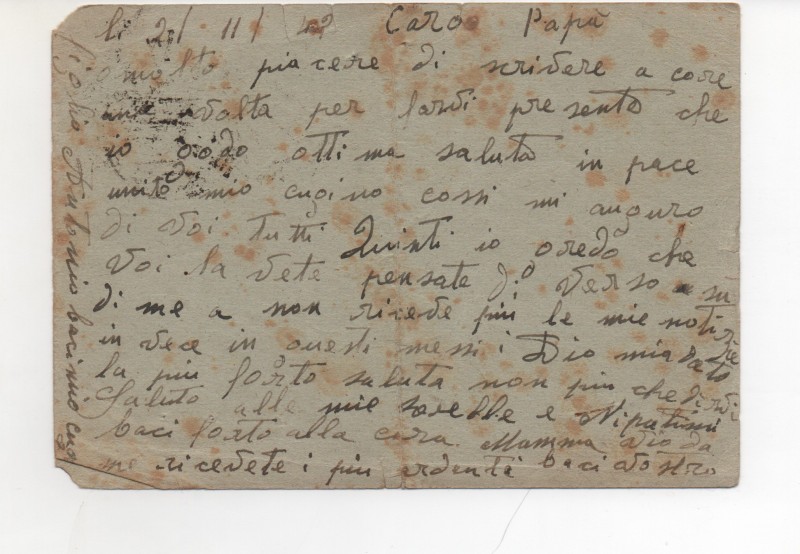 li 2/ 11/ 42 Caro Papà
o molto piacere di scrivere a core
une volta per farvi presento che
io godo ottima saluta in pace
unito mio cugino cossi mi auguro
di voi tutti Quinti io credo che
Voi la vete pensate di verso su
di me a non ricede più le mie notizie
in vece in questi messi Dio mia dato
la più forto saluta non più che dirvi
Saluto alle mie sorelle e Nipotini
baci forto alla cara Mamma Vio da
me ricevete i più ardenti baci vostro
figlio Antonio baci mio cug